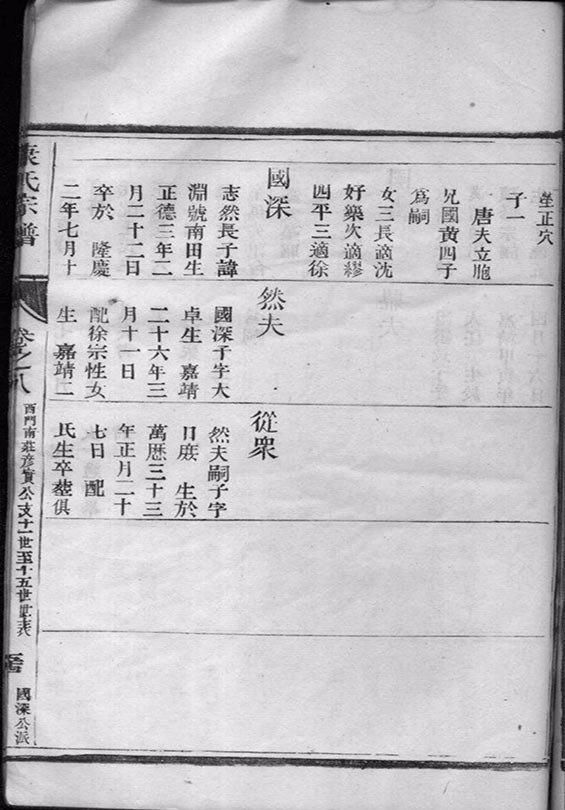 塟正穴
子一
唐夫立胞
兄國黃四子
爲嗣
女三長適沈
好樂次適繆
四平三適徐
國深
志然長子諱
淵號南田生
正德三年二
月二十二日
卒於 隆慶
二年七月十
然夫
國深子字大
卓生 嘉靖
二十六年三
月十一日
配徐宗性女
生 嘉靖二
從衆
然夫嗣子字
日 生於
萬曆三十三
年正月二十
七日 配
氏生卒塟俱
氏宗譜
卷之八
西門南莊彥實公支十一世至十五世世表
國深公派